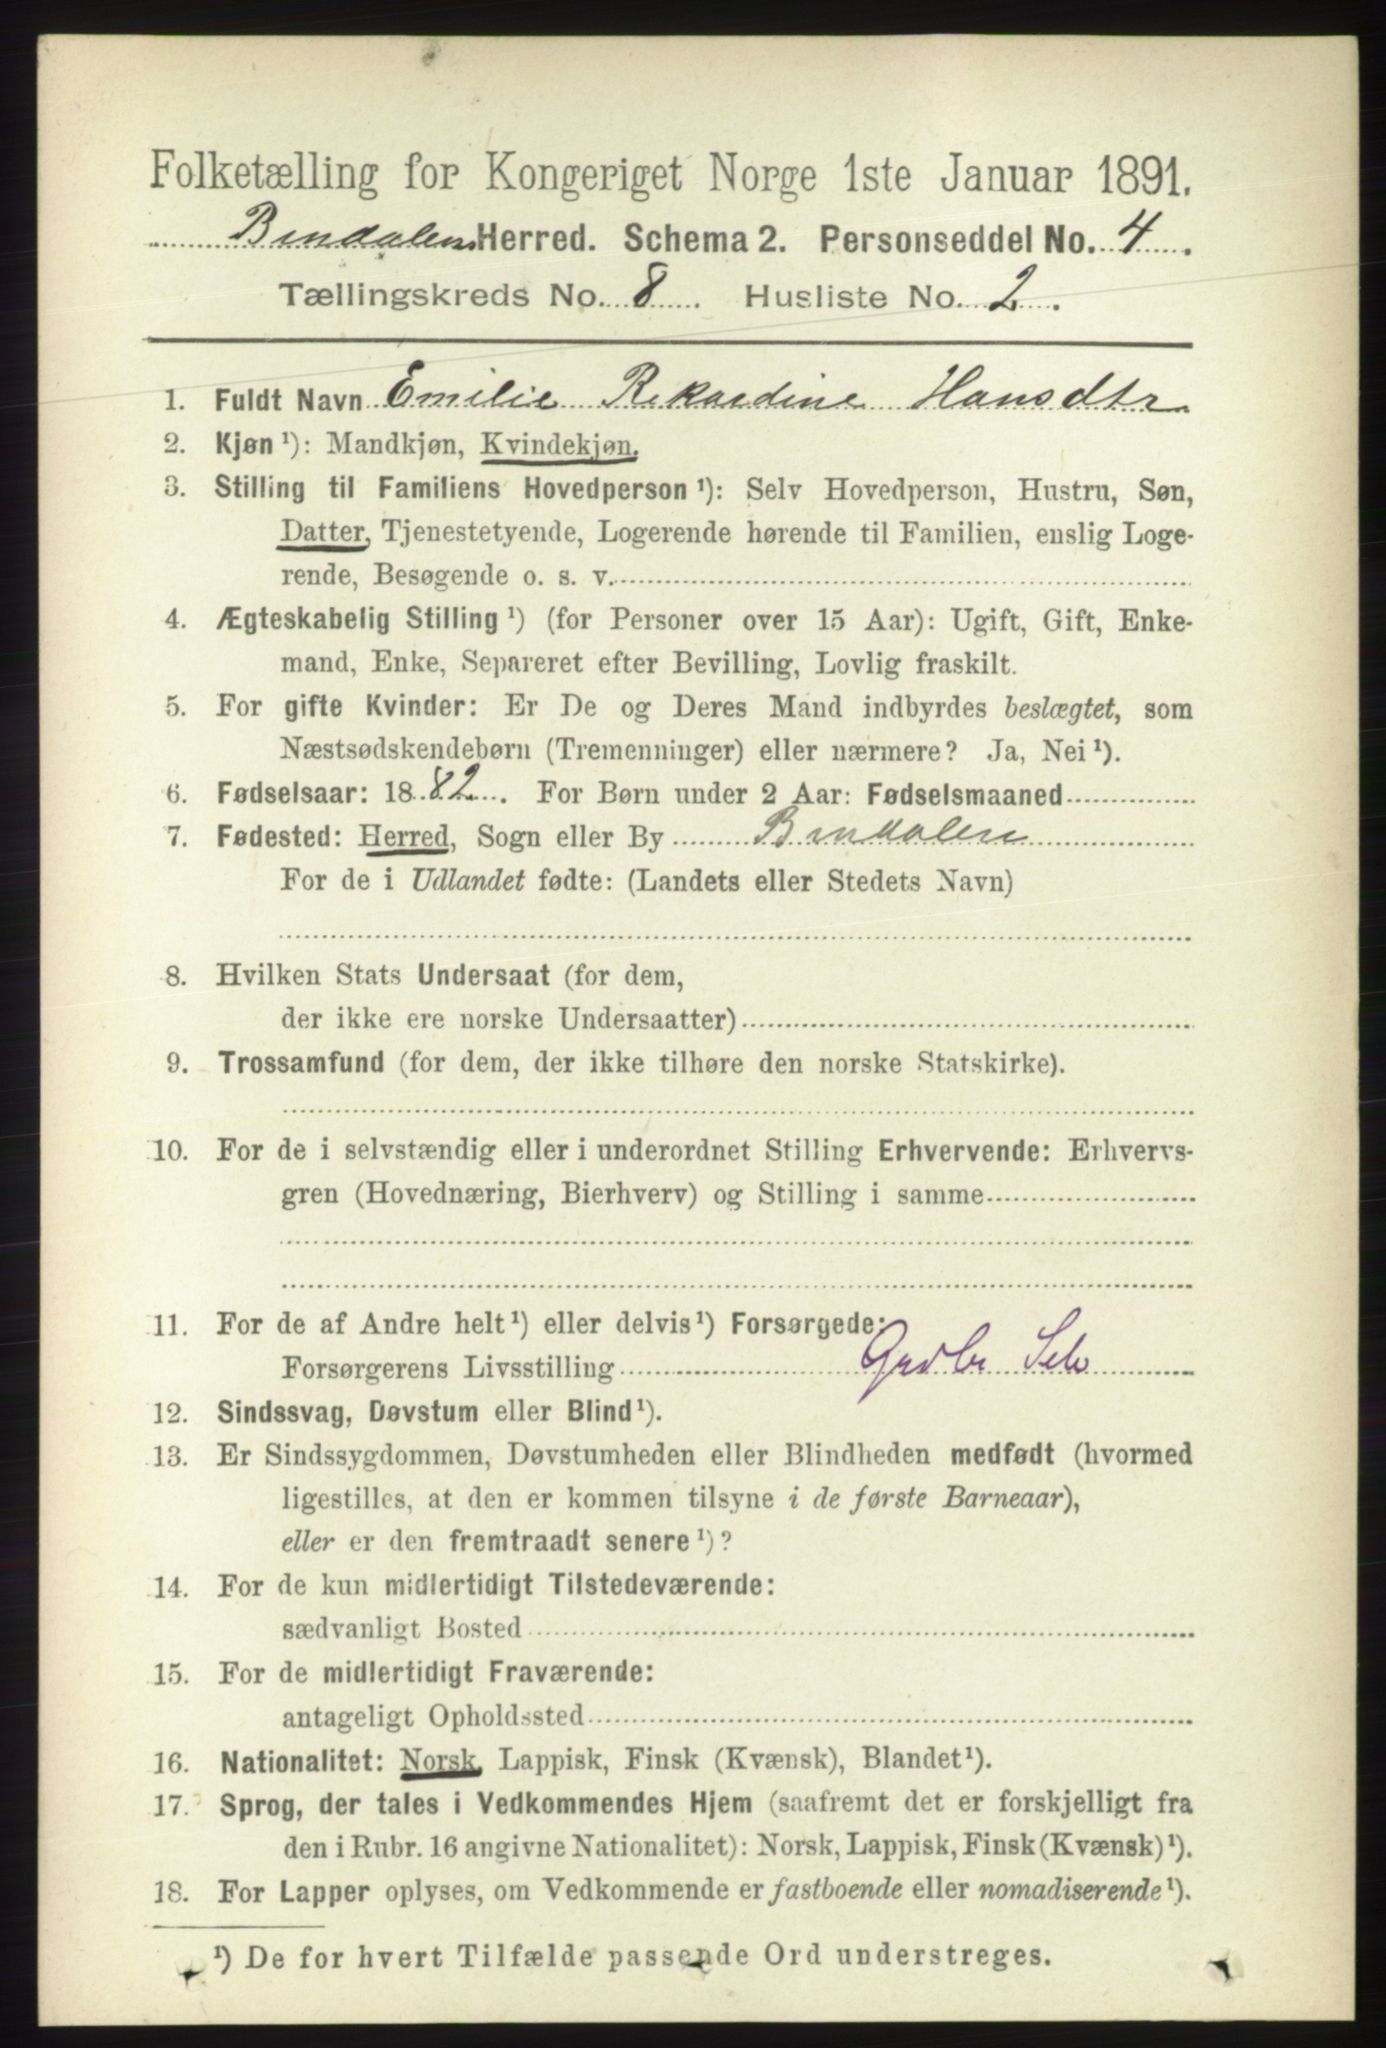 Folketælling for Kongeriget Norge 1ste Januar 1891.
Bindalen Herred. Schema 2. Personseddel No. 4.
Tællingskreds No. 8. Husliste No. 2.
1. Fuldt Navn Emilie Rikardine Hansdtr
2. Kjøn ¹): Mandkjøn, Kvindekjøn.
3. Stilling til Familiens Hovedperson ¹): Selv Hovedperson, Hustru, Søn,
Datter, Tjenestetyende, Logerende hørende til Familien, enslig Loge-
rende, Besøgende o. s. v.
4. Ægteskabelig Stilling ¹) (for Personer over 15 Aar): Ugift, Gift, Enke-
mand, Enke, Separeret efter Bevilling, Lovlig fraskilt.
5. For gifte Kvinder: Er De og Deres Mand indbyrdes beslægtet, som
Næstsødskendebørn (Tremenninger) eller nærmere? Ja, Nei ¹).
6. Fødselsaar: 1882. For Børn under 2 Aar: Fødselsmaaned
7. Fødested: Herred, Sogn eller By Bindalen
For de i Udlandet fødte: (Landets eller Stedets Navn)
8. Hvilken Stats Undersaat (for dem,
der ikke ere norske Undersaatter)
9. Trossamfund (for dem, der ikke tilhøre den norske Statskirke).
10. For de i selvstændig eller i underordnet Stilling Erhvervende: Erhvervs-
gren (Hovednæring, Bierhverv) og Stilling i samme
11. For de af Andre helt ¹) eller delvis ¹) Forsørgede:
Forsørgerens Livsstilling Grdbr Selv
12. Sindssvag, Døvstum eller Blind ¹).
13. Er Sindssygdommen, Døvstumheden eller Blindheden medfødt (hvormed
ligestilles, at den er kommen tilsyne i de første Barneaar),
eller er den fremtraadt senere ¹)?
14. For de kun midlertidigt Tilstedeværende:
sædvanligt Bosted
15. For de midlertidigt Fraværende:
antageligt Opholdssted
16. Nationalitet: Norsk, Lappisk, Finsk (Kvænsk), Blandet ¹).
17. Sprog, der tales i Vedkommendes Hjem (saafremt det er forskjelligt fra
den i Rubr. 16 angivne Nationalitet): Norsk, Lappisk, Finsk (Kvænsk) ¹).
18. For Lapper oplyses, om Vedkommende er fastboende eller nomadiserende ¹).
¹) De for hvert Tilfælde passende Ord understreges.